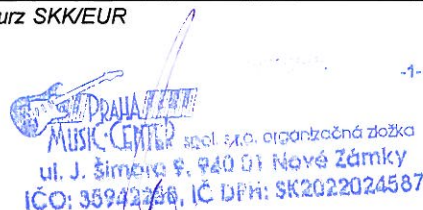 urz SKK/EUR
-1-
PRAHA
MUSIC CENTER spol. s.r.o. organizačná zložka
ul. J. Šimora 5, 940 01 Nové Zámky
IČO: 35942266, IČ DPH: SK2022024587